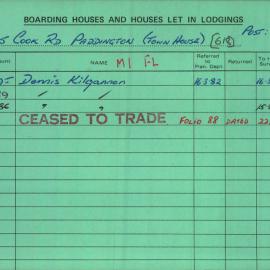 BOARDING HOUSES AND HOUSES LET IN LODGINGS
Post:
5 COOK RD PADDINGTON (TOWN HOUSE) [G18]
NAME M1 FL
Referred to Plan. Dept.
Returned
Dennis Kilgannon 16.3.82
9 " "
86 " "
CEASED TO TRADE FOLIO 88 DATED 22